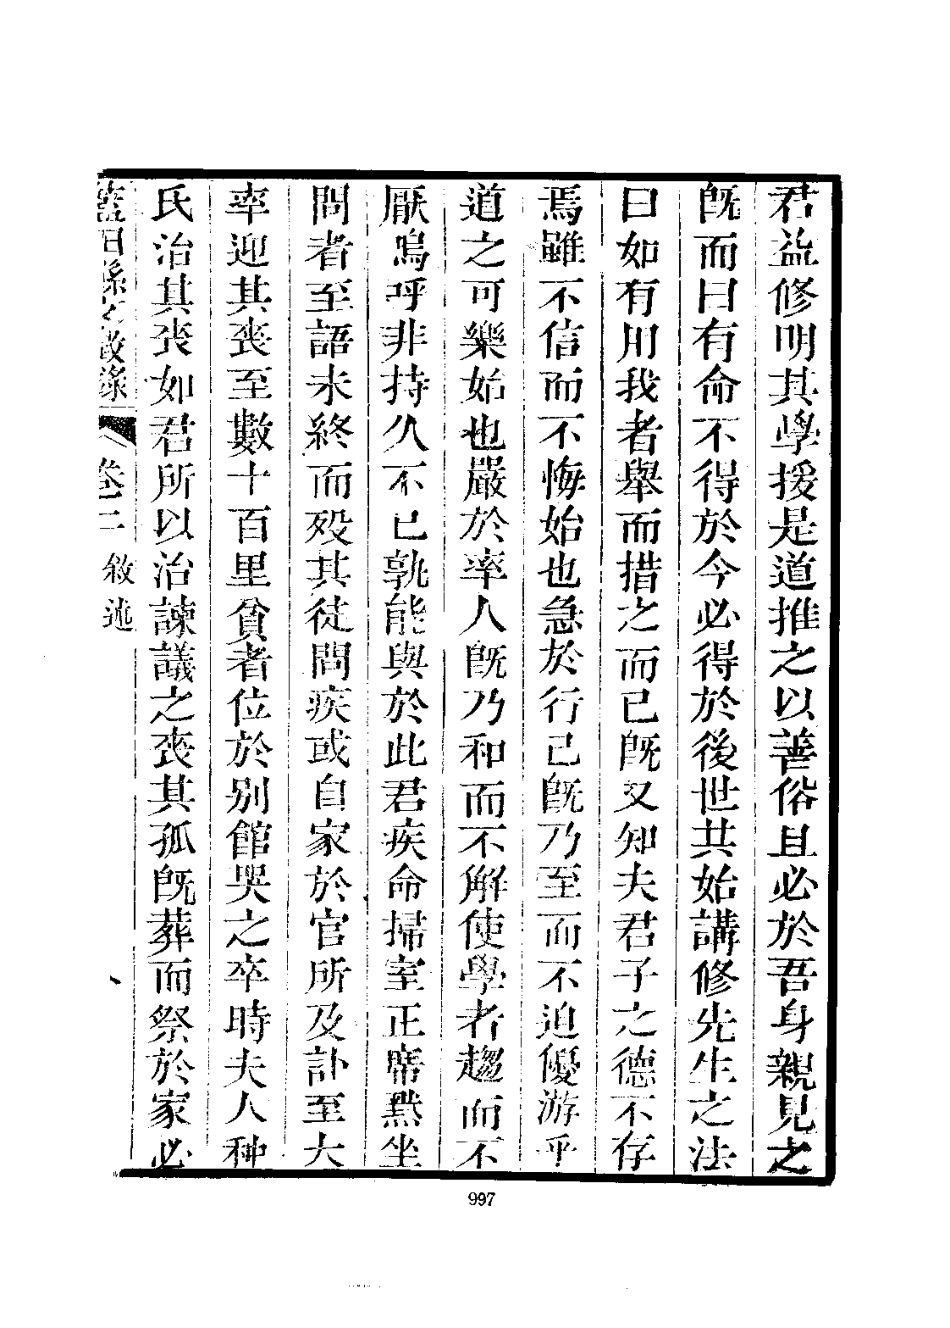 君益修明其學援是道推之以善俗且必於吾身親見之
旣而曰有命不得於今必得於後世共始講修先生之法
曰如有用我者舉而措之而已旣又知夫君子之德不存
焉雖不信而不悔始也急於行己旣乃至而不迫優游乎
道之可樂始也嚴於率人旣乃和而不解使學者趨而不
厭嗚呼非持久不已孰能與於此君疾命掃室正席黙坐
問者至語未終而歿其徒問疾或自家於官所及訃至大
率迎其喪至數十百里貧者位於别館哭之卒時夫人种
氏治其喪如君所以治諫議之喪其孤旣葬而祭於家必
藍田縣文徵錄 卷二 敘述
997